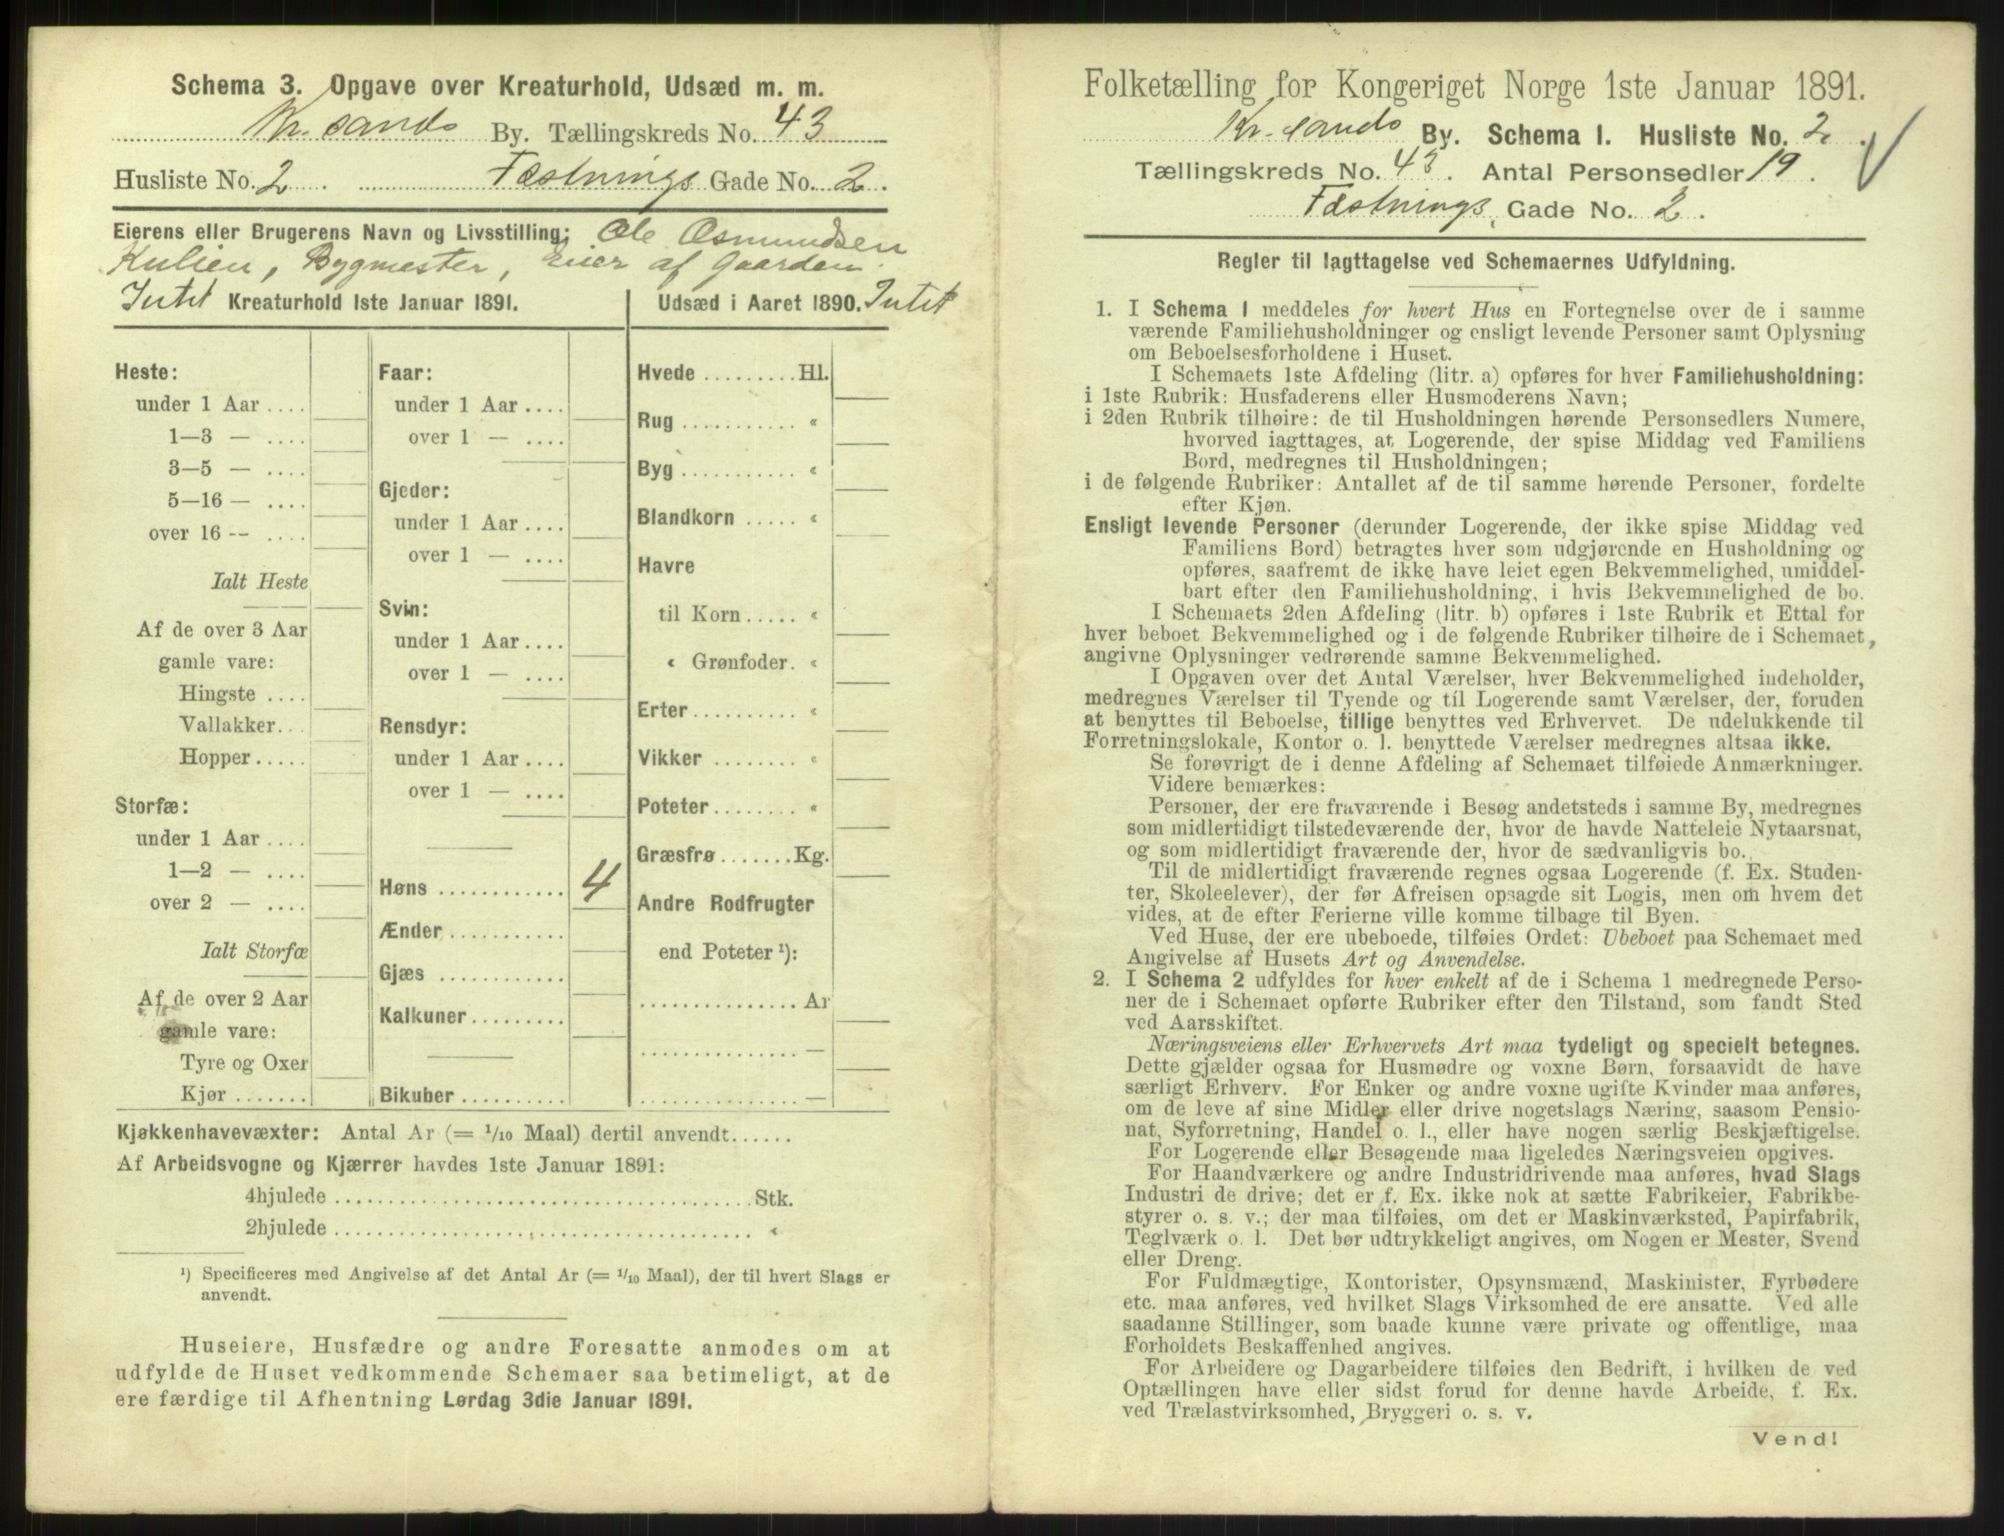 Schema 3. Opgave over Kreaturhold, Udsæd m. m.
Kr. sands By. Tællingskreds No. 43
Husliste No. 2 . Fæstnings Gade No. 2 .
Eierens eller Brugerens Navn og Livsstilling: Ole Osmundsen
Kulien, Bygmester, Eier af Gaarden.
Intet Kreaturhold 1ste Januar 1891.
Heste:
under 1 Aar ....
1—3 — ....
3—5 — ....
5—16 — ....
over 16 -- ....
Ialt Heste
Af de over 3 Aar
gamle vare:
Hingste ....
Vallakker...
Hopper.....
Storfæ:
under 1 Aar ....
1—2 — ....
over 2 — ....
Ialt Storfæ
Af de over 2 Aar
gamle vare:
Tyre og Oxer
Kjør.......
Faar:
under 1 Aar ....
over 1 — ....
Gjeder:
under 1 Aar ....
over 1 — ....
Svin:
under 1 Aar ....
over 1 — ....
Rensdyr:
under 1 Aar ....
over 1 — ....
Høns ............ 4
Ænder...........
Gjæs ............
Kalkuner.........
Bikuber..........
Udsæd i Aaret 1890. Intet
Hvede ......... Hl.
Rug ........... «
Byg ........... «
Blandkorn ..... «
Havre
til Korn..... «
« Grønfoder. «
Erter.......... «
Vikker ........ «
Poteter ........ «
Græsfrø.......Kg.
Andre Rodfrugter
end Poteter ¹):
............... Ar
............... —
............... —
Kjøkkenhavevæxter: Antal Ar (= 1/10 Maal) dertil anvendt......
Af Arbeidsvogne og Kjærrer havdes 1ste Januar 1891:
4hjulede ........................................Stk.
2hjulede ........................................ «
¹) Specificeres med Angivelse af det Antal Ar (= 1/10 Maal), der til hvert Slags er
anvendt.
Huseiere, Husfædre og andre Foresatte anmodes om at
udfylde de Huset vedkommende Schemaer saa betimeligt, at de
ere færdige til Afhentning Lørdag 3die Januar 1891.
Folketælling for Kongeriget Norge 1ste Januar 1891.
Kr. sands By. Schema I. Husliste No. 2 .
Tællingskreds No. 43 . Antal Personsedler 19 .
Fæstnings, Gade No. 2 .
Regler til Iagttagelse ved Schemaernes Udfyldning.
1. I Schema 1 meddeles for hvert Hus en Fortegnelse over de i samme
værende Familiehusholdninger og ensligt levende Personer samt Oplysning
om Beboelsesforholdene i Huset.
I Schemaets 1ste Afdeling (litr. a) opføres for hver Familiehusholdning:
i 1ste Rubrik: Husfaderens eller Husmoderens Navn;
i 2den Rubrik tilhøire: de til Husholdningen hørende Personsedlers Numere,
hvorved iagttages, at Logerende, der spise Middag ved Familiens
Bord, medregnes til Husholdningen;
i de følgende Rubriker: Antallet af de til samme hørende Personer, fordelte
efter Kjøn.
Ensligt levende Personer (derunder Logerende, der ikke spise Middag ved
Familiens Bord) betragtes hver som udgjørende en Husholdning og
opføres, saafremt de ikke have leiet egen Bekvemmelighed, umiddel-
bart efter den Familiehusholdning, i hvis Bekvemmelighed de bo.
I Schemaets 2den Afdeling (litr. b) opføres i 1ste Rubrik et Ettal for
hver beboet Bekvemmelighed og i de følgende Rubriker tilhøire de i Schemaet
angivne Oplysninger vedrørende samme Bekvemmelighed.
I Opgaven over det Antal Værelser, hver Bekvemmelighed indeholder,
medregnes Værelser til Tyende og til Logerende samt Værelser, der, foruden
at benyttes til Beboelse, tillige benyttes ved Erhvervet. De udelukkende til
Forretningslokale, Kontor o. l. benyttede Værelser medregnes altsaa ikke.
Se forøvrigt de i denne Afdeling af Schemaet tilføiede Anmærkninger.
Videre bemærkes:
Personer, der ere fraværende i Besøg andetsteds i samme By, medregnes
som midlertidigt tilstedeværende der, hvor de havde Natteleie Nytaarsnat,
og som midlertidigt fraværende der, hvor de sædvanligvis bo.
Til de midlertidigt fraværende regnes ogsaa Logerende (f. Ex. Studen-
ter, Skoleelever), der før Afreisen opsagde sit Logis, men om hvem det
vides, at de efter Ferierne ville komme tilbage til Byen.
Ved Huse, der ere ubeboede, tilføies Ordet: Ubeboet paa Schemaet med
Angivelse af Husets Art og Anvendelse.
2. I Schema 2 udfyldes for hver enkelt af de i Schema 1 medregnede Perso-
ner de i Schemaet opførte Rubriker efter den Tilstand, som fandt Sted
ved Aarsskiftet.
Næringsveiens eller Erhvervets Art maa tydeligt og specielt betegnes.
Dette gjælder ogsaa for Husmødre og voxne Børn, forsaavidt de have
særligt Erhverv. For Enker og andre voxne ugifte Kvinder maa anføres,
om de leve af sine Midler eller drive nogetslags Næring, saasom Pensio-
nat, Syforretning, Handel o. l., eller have nogen særlig Beskjæftigelse.
For Logerende eller Besøgende maa ligeledes Næringsveien opgives.
For Haandværkere og andre Industridrivende maa anføres, hvad Slags
Industri de drive; det er f. Ex. ikke nok at sætte Fabrikeier, Fabrikbe-
styrer o. s. v.; der maa tilføies, om det er Maskinværksted, Papirfabrik,
Teglværk o. l. Det bør udtrykkeligt angives, om Nogen er Mester, Svend
eller Dreng.
For Fuldmægtige, Kontorister, Opsynsmænd, Maskinister, Fyrbødere
etc. maa anføres, ved hvilket Slags Virksomhed de ere ansatte. Ved alle
saadanne Stillinger, som baade kunne være private og offentlige, maa
Forholdets Beskaffenhed angives.
For Arbeidere og Dagarbeidere tilføies den Bedrift, i hvilken de ved
Optællingen have eller sidst forud for denne havde Arbeide, f. Ex.
ved Trælastvirksomhed, Bryggeri o. s. v.
Vend!